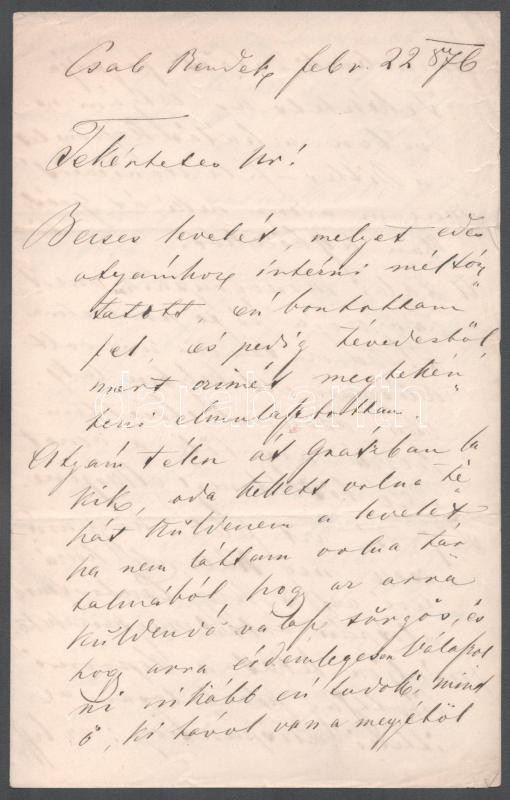 Csab Rendek febr. 22 876
Tekéntetes Úr!
Becses levelét, melyet édes
atyámhoz intézni méltóz
tatott én bontottam
fel, és pedig tévedésből
mert czimét megtekén
teni elmulasztottam.
Atyám télen át Gratzban la
kik, oda kellett volna te
hát küldenem a levelet,
ha nem láttam volna tar
talmából, hog az arra
küldendő válasz sürgős, és
hog arra érdemlegesen válaszol
ni inkább én tudok, mint
ő, ki távol van a megyétől
darabanth